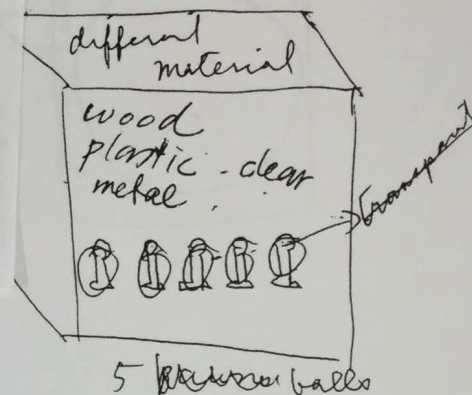 different
material
wood
plastic - clear
metal
transparent
5 balls